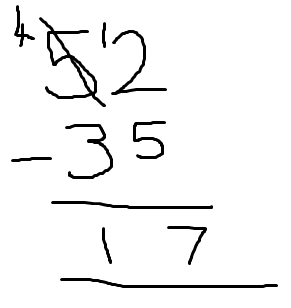 4 5 12
- 3 5
1 7